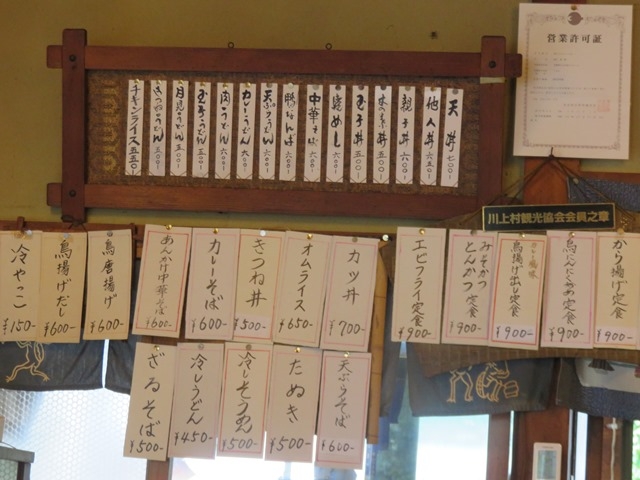 営業許可証
天丼 七〇〇-
他人丼 六五〇-
親子丼 六〇〇-
木の葉丼 五〇〇-
玉子丼 五〇〇-
焼めし 六〇〇-
中華そば 六〇〇-
鴨なんば 六〇〇-
天ぷらうどん 六〇〇-
カレーうどん 六〇〇-
肉うどん 六〇〇-
玉子うどん 五〇〇-
月見うどん 五〇〇-
きつねうどん 五〇〇-
チキンライス 五五〇-
川上村観光協会会員之章
から揚げ定食 ¥900-
鳥にんにく炒め定食 ¥900-
鳥揚げ出し定食 ¥900-
みそかつ
とんかつ 定食 ¥900-
エビフライ定食 ¥900-
カツ丼 ¥700-
オムライス ¥650-
きつね丼 ¥500-
カレーそば ¥600-
あんかけ中華そば ¥600-
鳥唐揚げ ¥600-
鳥揚げだし ¥600-
冷やっこ ¥150-
天ぷらそば ¥600-
たぬき ¥500-
冷しそうめん ¥500-
冷しうどん ¥450-
ざるそば ¥500-